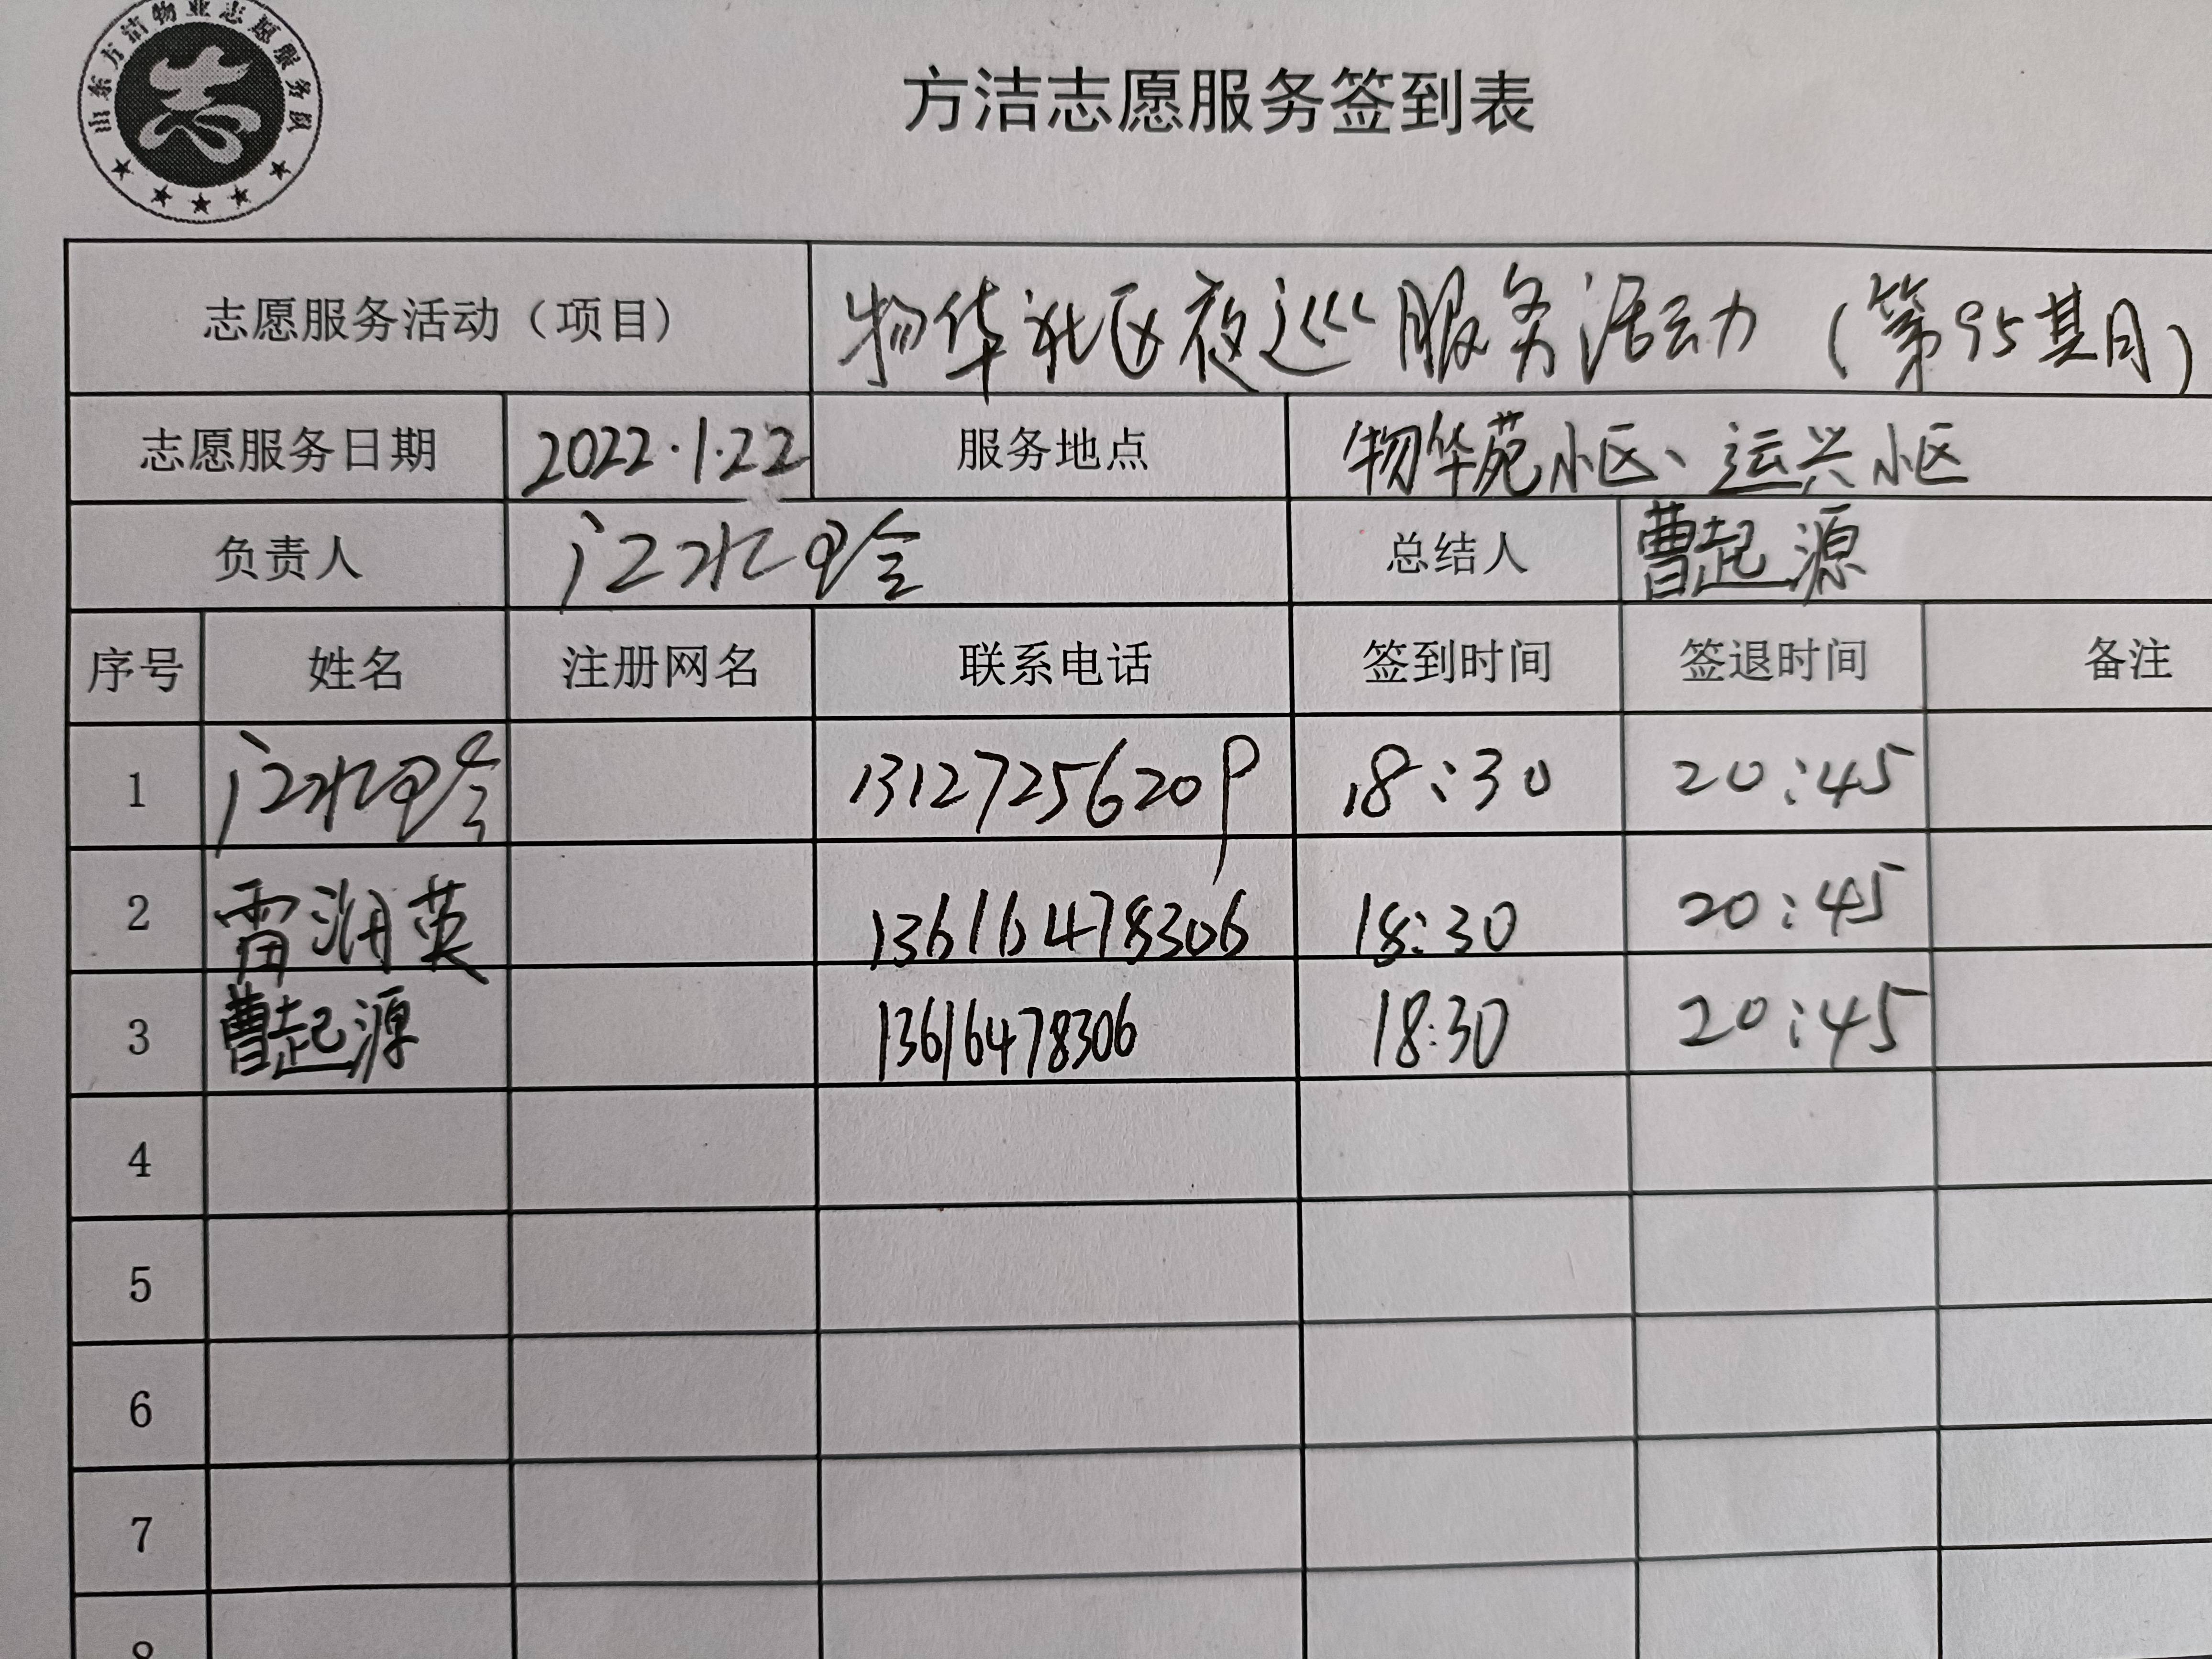 山东方洁物业志愿服务队
志
方洁志愿服务签到表
志愿服务活动（项目） 物华社区夜巡服务活动（第95期）
志愿服务日期 2022.1.22 服务地点 物华苑小区、运兴小区
负责人 总结人 曹起源
序号 姓名 注册网名 联系电话 签到时间 签退时间 备注
1 13127256209 18:30 20:45
2 雷润英 13616478306 18:30 20:45
3 曹起源 13616478306 18:30 20:45
4
5
6
7
8